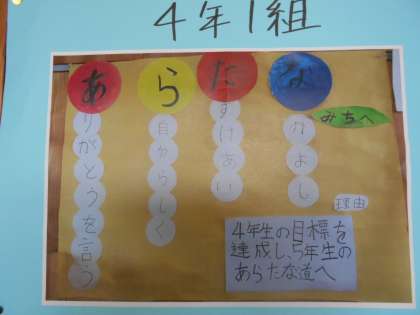 4年1組
あらたな
みちへ
りがとうを言う
自からしく
すけあい
かよし
理由
4年生の目標を
達成し、5年生の
あらたな道へ